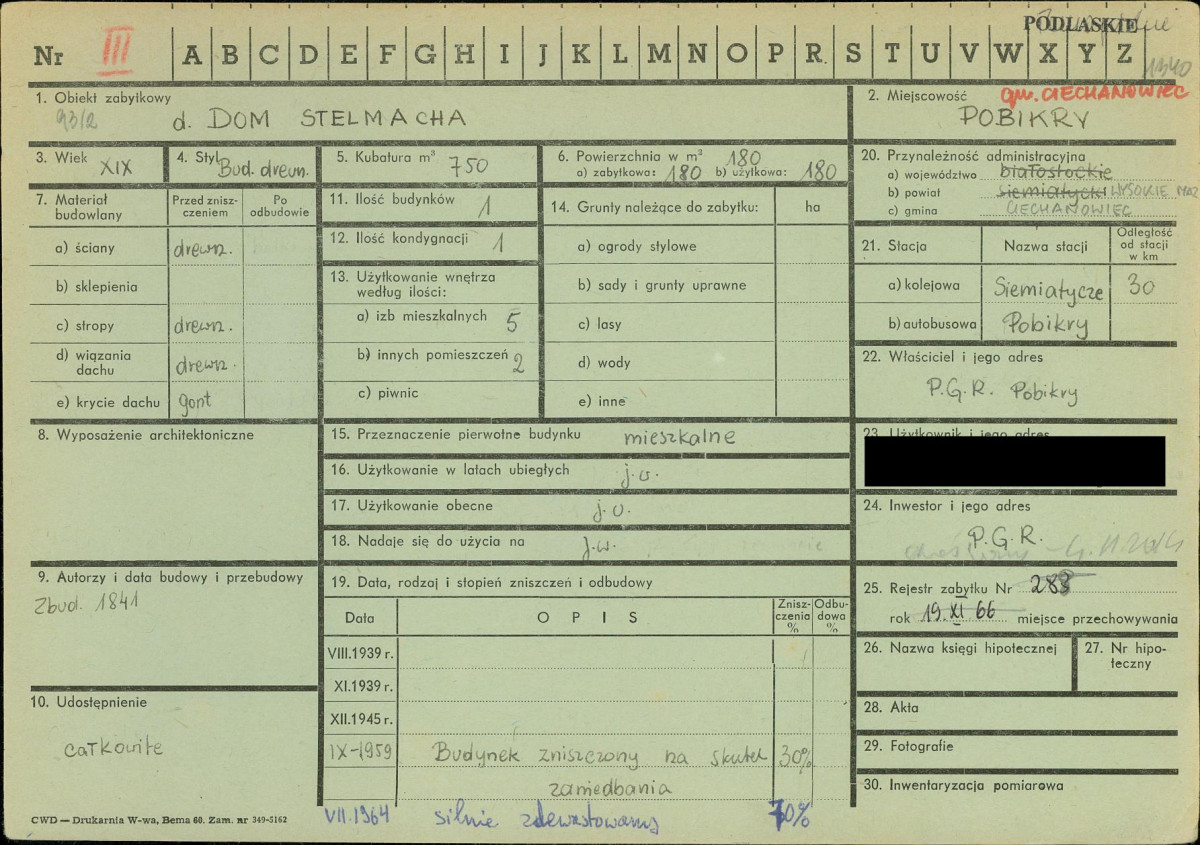 PODLASKIE
Nr III A B C D E F G H I J K L M N O P R. S T U V W X Y Z
1340
1. Obiekt zabytkowy
93/2
d. DOM STELMACHA
2. Miejscowość gm. CIECHANOWIEC
POBIKRY
3. Wiek XIX
4. Styl Bud. drewn.
5. Kubatura m³ 750
6. Powierzchnia w m² 180
a) zabytkowa: 180 b) użytkowa: 180
20. Przynależność administracyjna
a) województwo białostockie
b) powiat siemiatycki WYSOKIE MAZ
c) gmina CIECHANOWIEC
7. Materiał budowlany
Przed zniszczeniem
Po odbudowie
a) ściany drewn.
b) sklepienia
c) stropy drewn.
d) wiązania dachu drewn.
e) krycie dachu gont
11. Ilość budynków 1
12. Ilość kondygnacji 1
13. Użytkowanie wnętrza
według ilości:
a) izb mieszkalnych 5
b) innych pomieszczeń 2
c) piwnic
14. Grunty należące do zabytku: ha
a) ogrody stylowe
b) sady i grunty uprawne
c) lasy
d) wody
e) inne
21. Stacja
Nazwa stacji
Odległość od stacji w km
a) kolejowa Siemiatycze 30
b) autobusowa Pobikry
22. Właściciel i jego adres
P.G.R. Pobikry
8. Wyposażenie architektoniczne
15. Przeznaczenie pierwotne budynku mieszkalne
16. Użytkowanie w latach ubiegłych j.w.
17. Użytkowanie obecne j.w.
18. Nadaje się do użycia na j.w.
23. Użytkownik i jego adres
24. Inwestor i jego adres
P.G.R.
9. Autorzy i data budowy i przebudowy
Zbud. 1841
19. Data, rodzaj i stopień zniszczeń i odbudowy
Data
O P I S
Zniszczenia %
Odbudowa %
VIII.1939 r.
XI.1939 r.
XII.1945 r.
IX-1959 Budynek zniszczony na skutek 30%
zaniedbania
VII.1964 silnie zdewastowany 70%
25. Rejestr zabytku Nr 288
rok 19 XI 66 miejsce przechowywania
26. Nazwa księgi hipotecznej
27. Nr hipoteczny
28. Akta
29. Fotografie
30. Inwentaryzacja pomiarowa
10. Udostępnienie
całkowite
CWD — Drukarnia W-wa, Bema 60. Zam. nr 349-5162